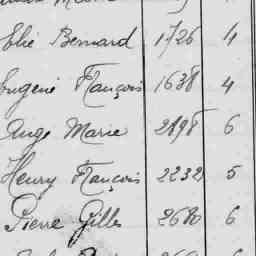 Elie Bernard 1726 4
Eugène François 1638 4
Ange Marie 2198 6
Henry François 2232 5
Pierre Gilles 2680 6